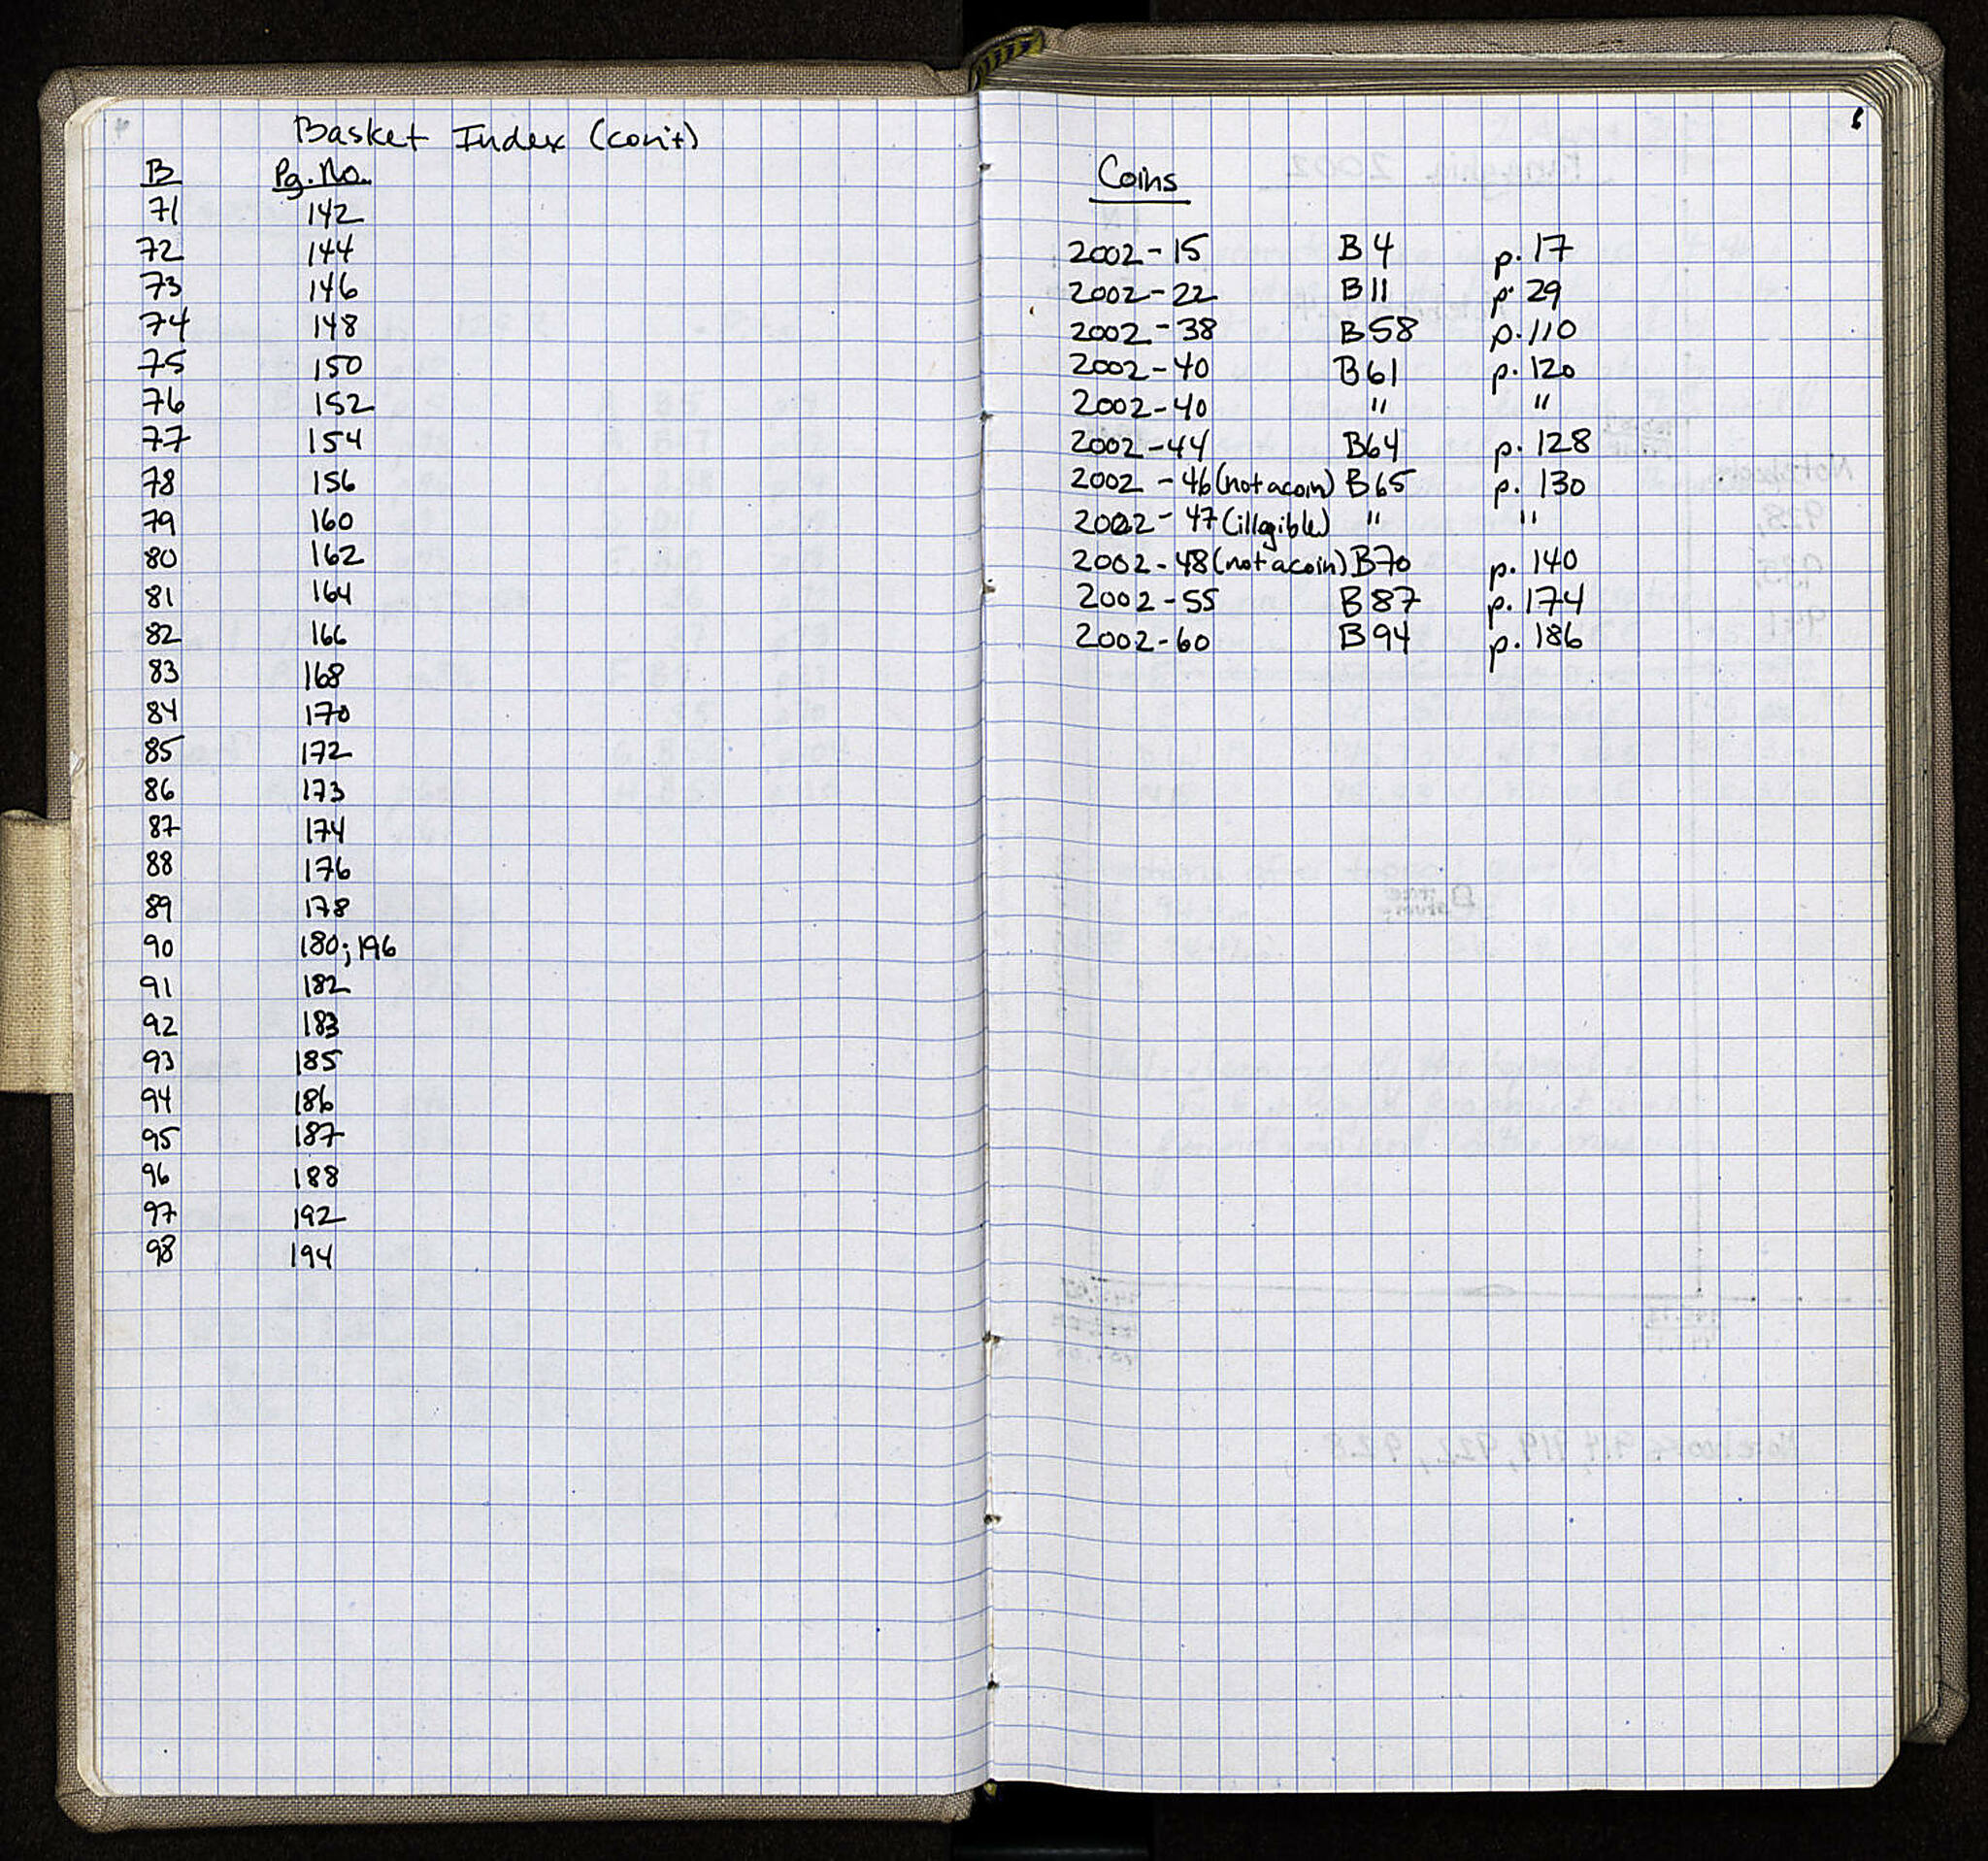 Basket Index (con't)
B Pg. No.
71 142
72 144
73 146
74 148
75 150
76 152
77 154
78 156
79 160
80 162
81 164
82 166
83 168
84 170
85 172
86 173
87 174
88 176
89 178
90 180; 196
91 182
92 183
93 185
94 186
95 187
96 188
97 192
98 194
Coins
2002-15 B4 p. 17
2002-22 B11 p. 29
2002-38 B58 p. 110
2002-40 B61 p. 120
2002-40 " "
2002-44 B64 p. 128
2002-46 (not a coin) B65 p. 130
2002-47 (illgible) " "
2002-48 (not a coin) B70 p. 140
2002-55 B87 p. 174
2002-60 B94 p. 186